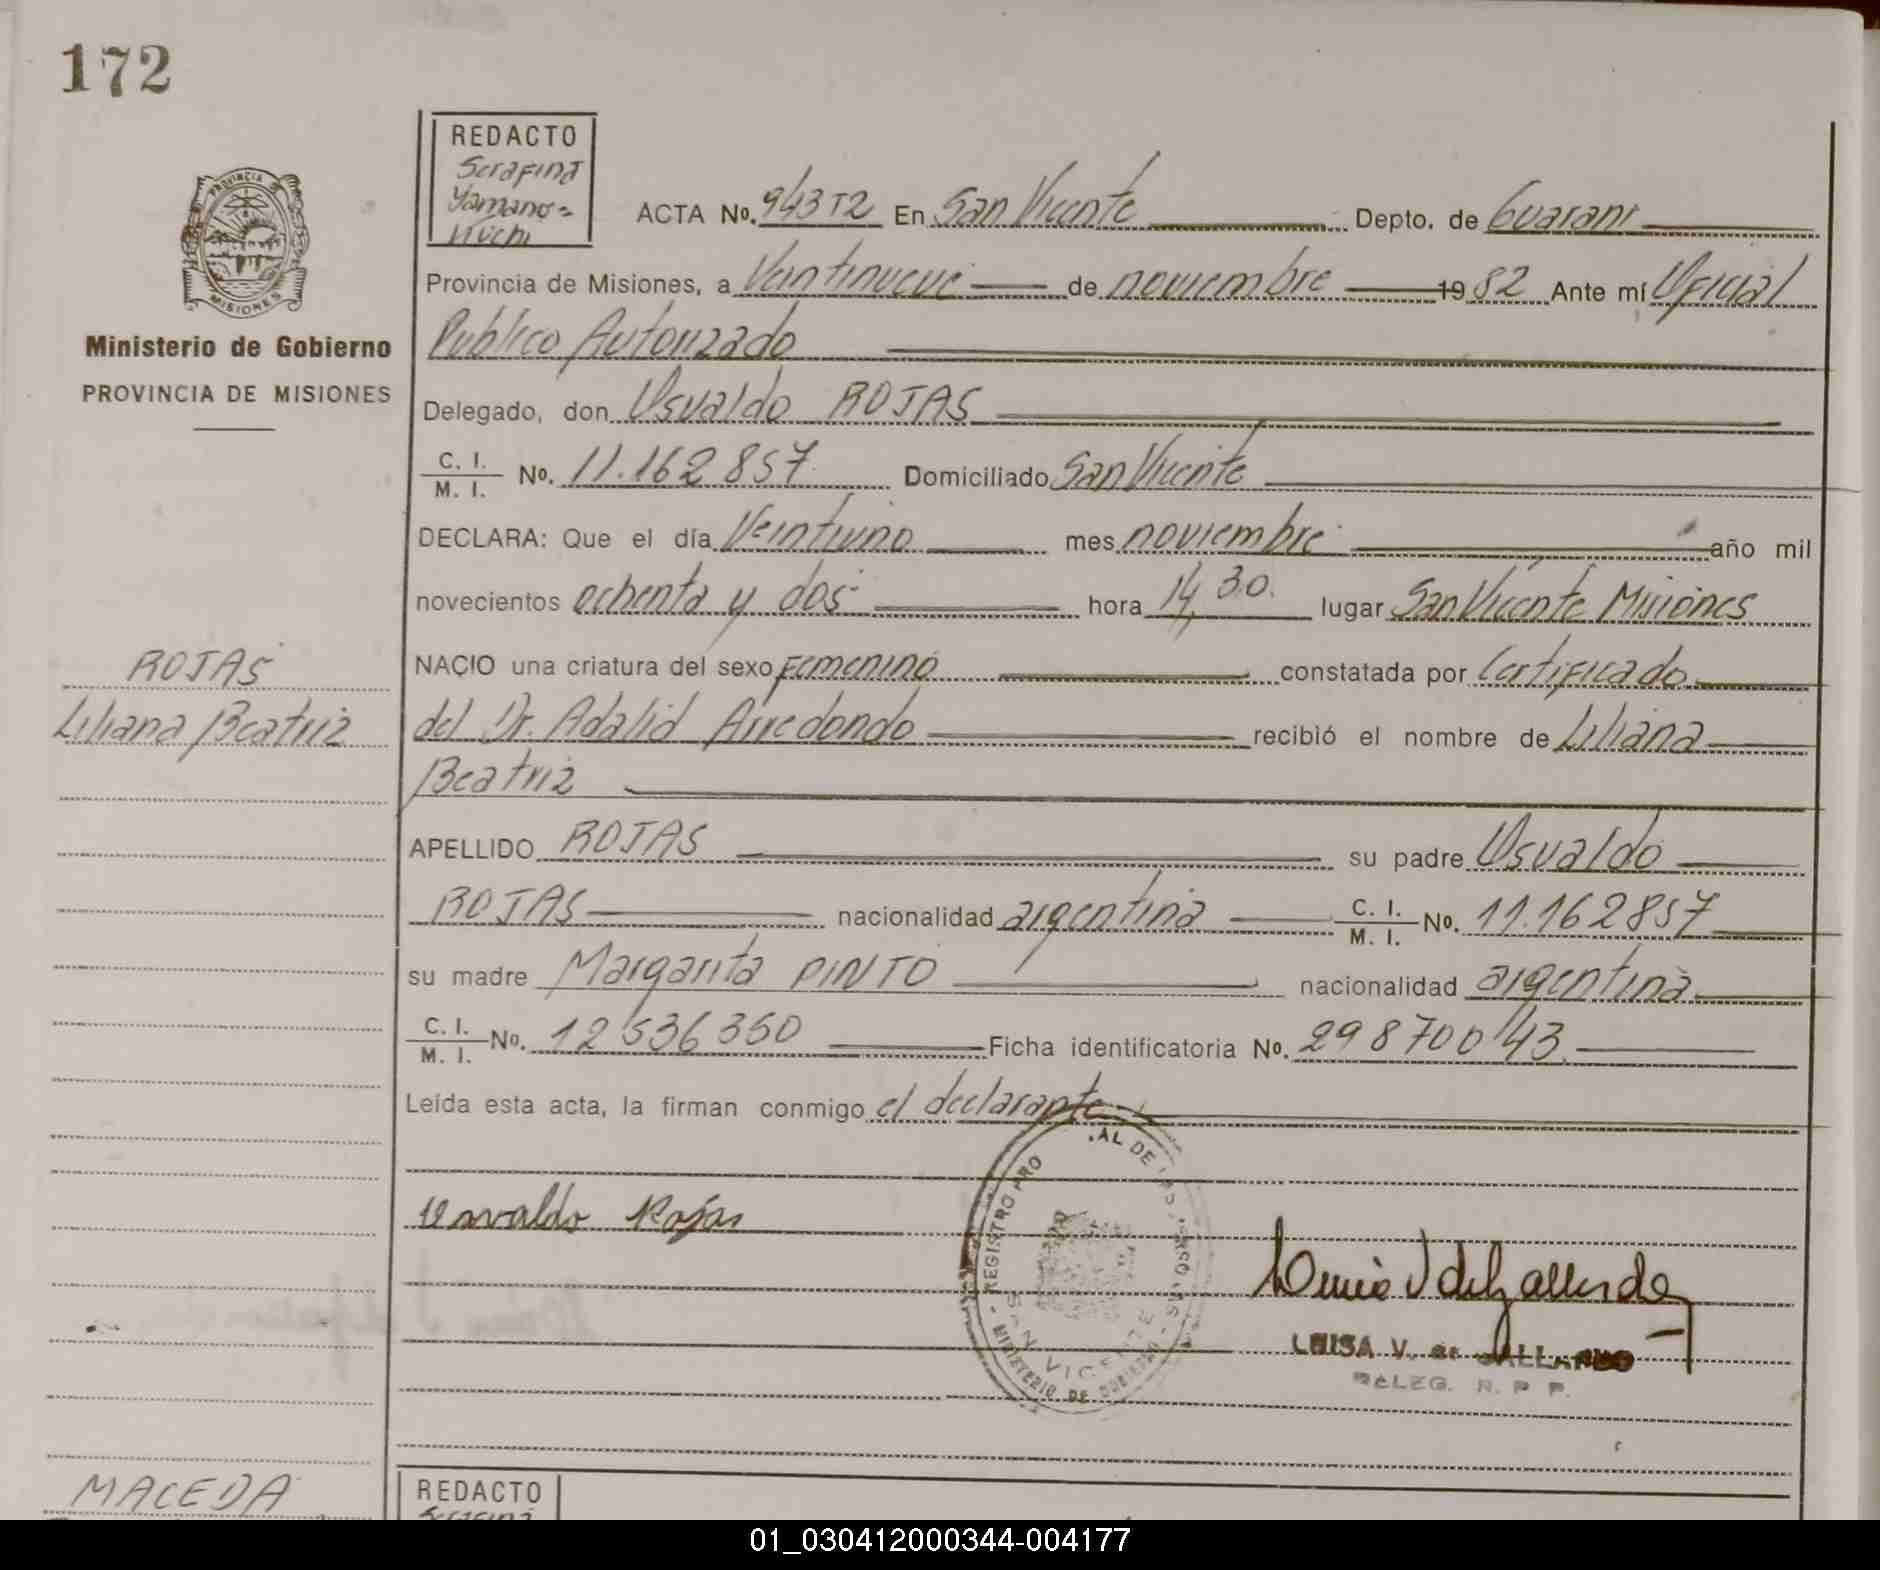 172
REDACTO
Serafina
Yamano=
Kuchi
ACTA No. 943T2 En San Vicente Depto. de Guaraní
Provincia de Misiones, a Veintinueve de noviembre 1982 Ante mí Oficial
Publico Autorizado
Ministerio de Gobierno
PROVINCIA DE MISIONES
Delegado, don Osvaldo ROJAS
C. I.
M. I. No. 11.162857 Domiciliado San Vicente
DECLARA: Que el día Veintiuno mes noviembre año mil
novecientos ochenta y dos hora 14,30. lugar San Vicente Misiones
ROJAS
Liliana Beatriz
NACIO una criatura del sexo femenino constatada por Certificado
del Dr. Adalid Arredondo recibió el nombre de Liliana
Beatriz
APELLIDO ROJAS su padre Osvaldo
ROJAS nacionalidad argentina C. I. M. I. No. 11.162857
su madre Margarita PINTO nacionalidad argentina
C. I. M. I. No. 12536350 Ficha identificatoria No. 298700/43
Leída esta acta, la firman conmigo el declarante
Osvaldo Rojas
REGISTRO
SAN VICENTE
MINISTERIO DE GOBIERNO
LUISA V. de GALLARDO
DELEG. R. P. P.
MACEDA
REDACTO
Serafina
01_030412000344-004177